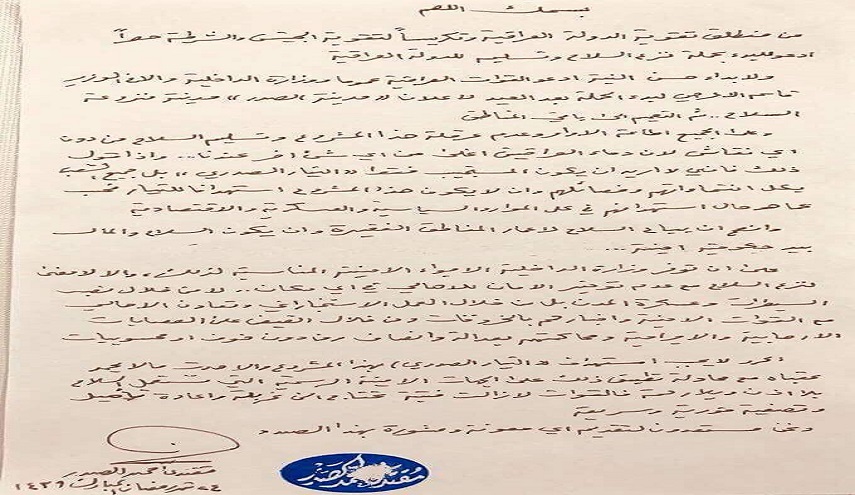 بسمك اللهم
من منطلق تقوية الدولة العراقية وتكريساً لتقوية الجيش والشرطة حصراً
ادعو للبدء بحملة نزع السلاح وتسليمه للدولة العراقية
ولابداء حسن النية ادعو القوات العراقية عموما ووزارة الداخلية والاخ الوزير
قاسم الاعرجي لبدء الحملة بعد العيد لاعلان «مدينة الصدر» مدينة منزوعة
السلاح .. ثم التعميم الى باقي المناطق
وعلى الجميع اطاعة الاوامر وعدم عرقلة هذا المشروع وتسليم السلاح من دون
اي نقاش لان دماء العراقيين اغلى من اي شيء اخر عندنا .. واذ اقول
ذلك فانني لا اريد ان يكون المستجيب فقط «التيار الصدري» بل جميع الشعب
بكل انتماءاتهم وفصائلهم وان لا يكون هذا المشروع استهدافا للتيار فحب
كما هو حال استهدافهم في كل الموارد السياسية والعسكرية والاقتصادية
وانصح ان يباع السلاح لاعمار المناطق الفقيرة وان يكون السلاح والمال
بيد حكومية امينة ...
على ان توفر وزارة الداخلية الاجواء الامنية المناسبة لذلك، والا لا معنى
لنزع السلاح مع عدم توفير الامان للاهالي في اي مكان .. لا من خلال نصب
السيطرات وعسكرة المدن بل من خلال العمل الاستخباراتي وتعاون الاهالي
مع القوات الامنية واخبارهم بالخروقات ومن خلال القبض على العصابات
الارهابية والاجرامية ومحاكمتهم بعدالة وانصاف دون خوف او محسوبيات
اكرر لا يجب استهداف «التيار الصدري» بهذا المشروع والا حدث ما لا يحمد
عقباه مع محاولة تطبيق ذلك على الجهات الامنية الرسمية التي تستعمل السلاح
بلا اذن وبلا رخصة فالقوات لازالت فتية تحتاج الى غربلة واعادة تأهيل
وتصفية فورية وسريعة
ونحن مستعدون لتقديم اي معونة ومشورة بهذا الصدد
مقتدى محمد الصدر
٢٤ شهر رمضان المبارك ١٤٣٩
مقتدى محمد الصدر